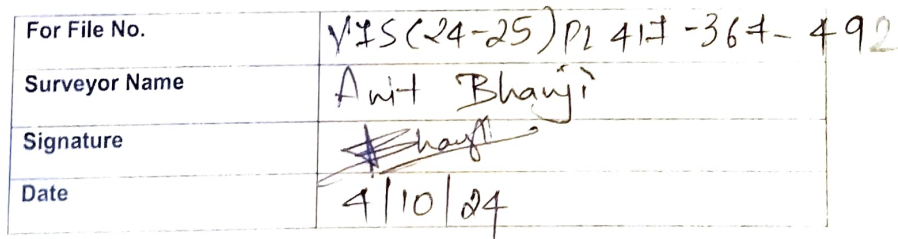 For File No. VIS(24-25)PL 417-367-492
Surveyor Name Anit Bhanji
Signature Bhanji
Date 4/10/24